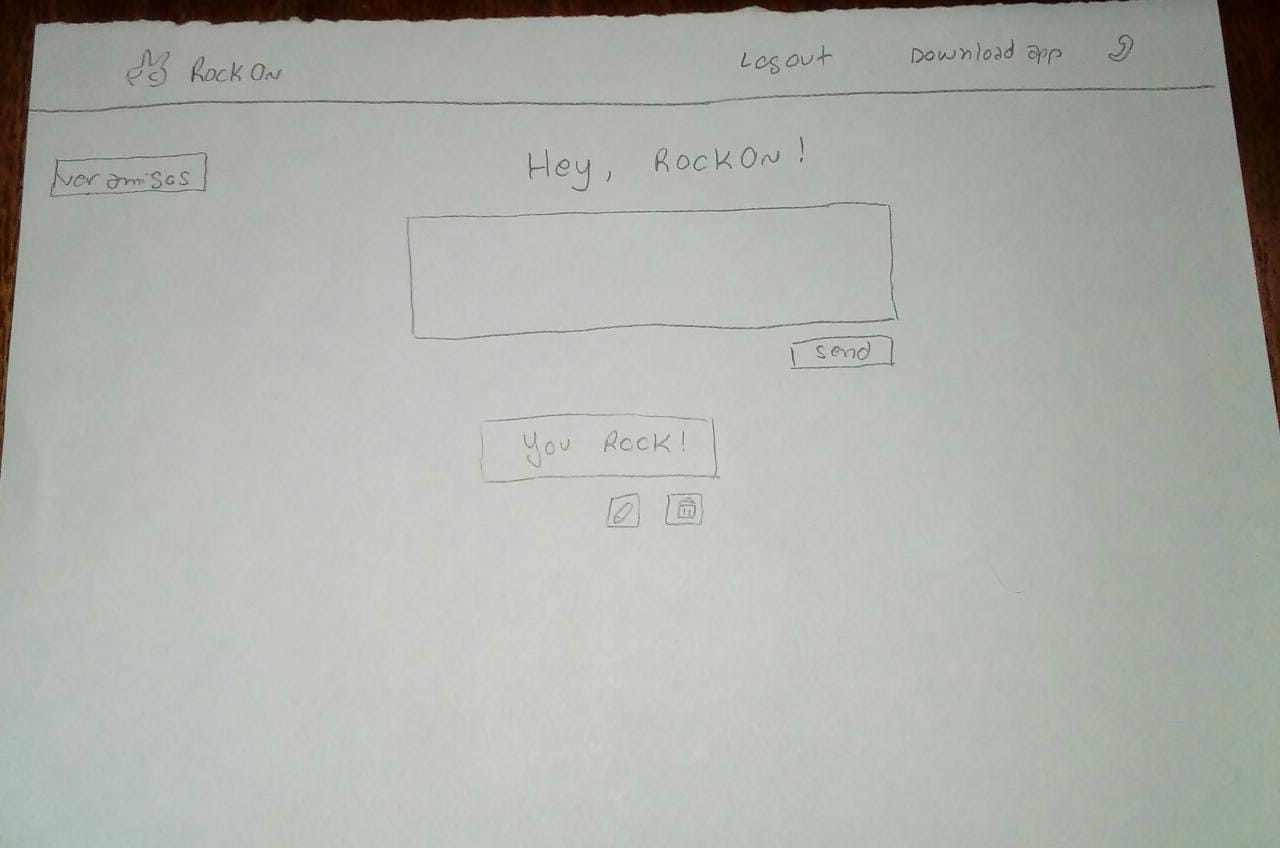 Rock On
Logout
Download app
ver amigos
Hey, Rock On!
send
You Rock!